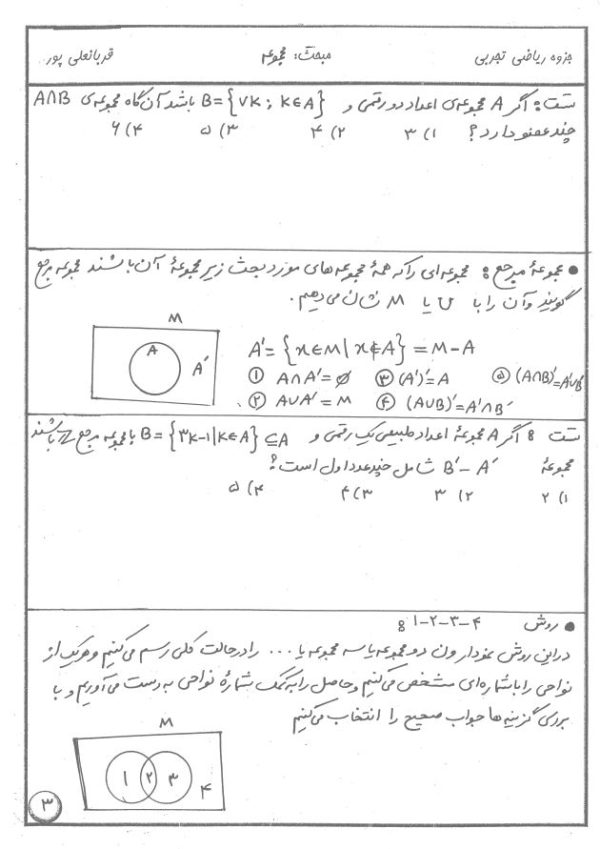 جزوه ریاضی تجربی مبحث: مجموعه قربانعلی پور
تست: اگر A مجموعه‌ی اعداد دو رقمی و B={۷k ; k∈A} باشد آن گاه مجموعه‌ی A∩B
چند عضو دارد؟ ۱) ۳ ۲) ۴ ۳) ۵ ۴) ۶
● مجموعهٔ مرجع: مجموعه‌ای را که همهٔ مجموعه‌های مورد بحث زیر مجموعهٔ آن باشند مجموعه مرجع
گویند و آن را با U یا M نشان می‌دهیم.
M
A A′
A′={x∈M|x∉A}=M-A
① A∩A′=∅ ③ (A′)′=A ⑤ (A∩B)′=A′∪B′
② A∪A′=M ④ (A∪B)′=A′∩B′
تست: اگر A مجموعهٔ اعداد طبیعی یک رقمی و B={۳k-۱|k∈A}⊆A با مجموعه مرجع Z باشند
مجموعهٔ B′-A′ شامل چند عدد اول است؟
۱) ۲ ۲) ۳ ۳) ۴ ۴) ۵
● روش ۱-۲-۳-۴:
در این روش نمودار ون دو مجموعه یا سه مجموعه یا ... را در حالت کلی رسم می‌کنیم و هریک از
نواحی را با شماره‌ای مشخص می‌کنیم و حاصل را به کمک شمارهٔ نواحی به دست می‌آوریم و با
بررسی گزینه‌ها جواب صحیح را انتخاب می‌کنیم
M
۱ ۲ ۳ ۴
۳